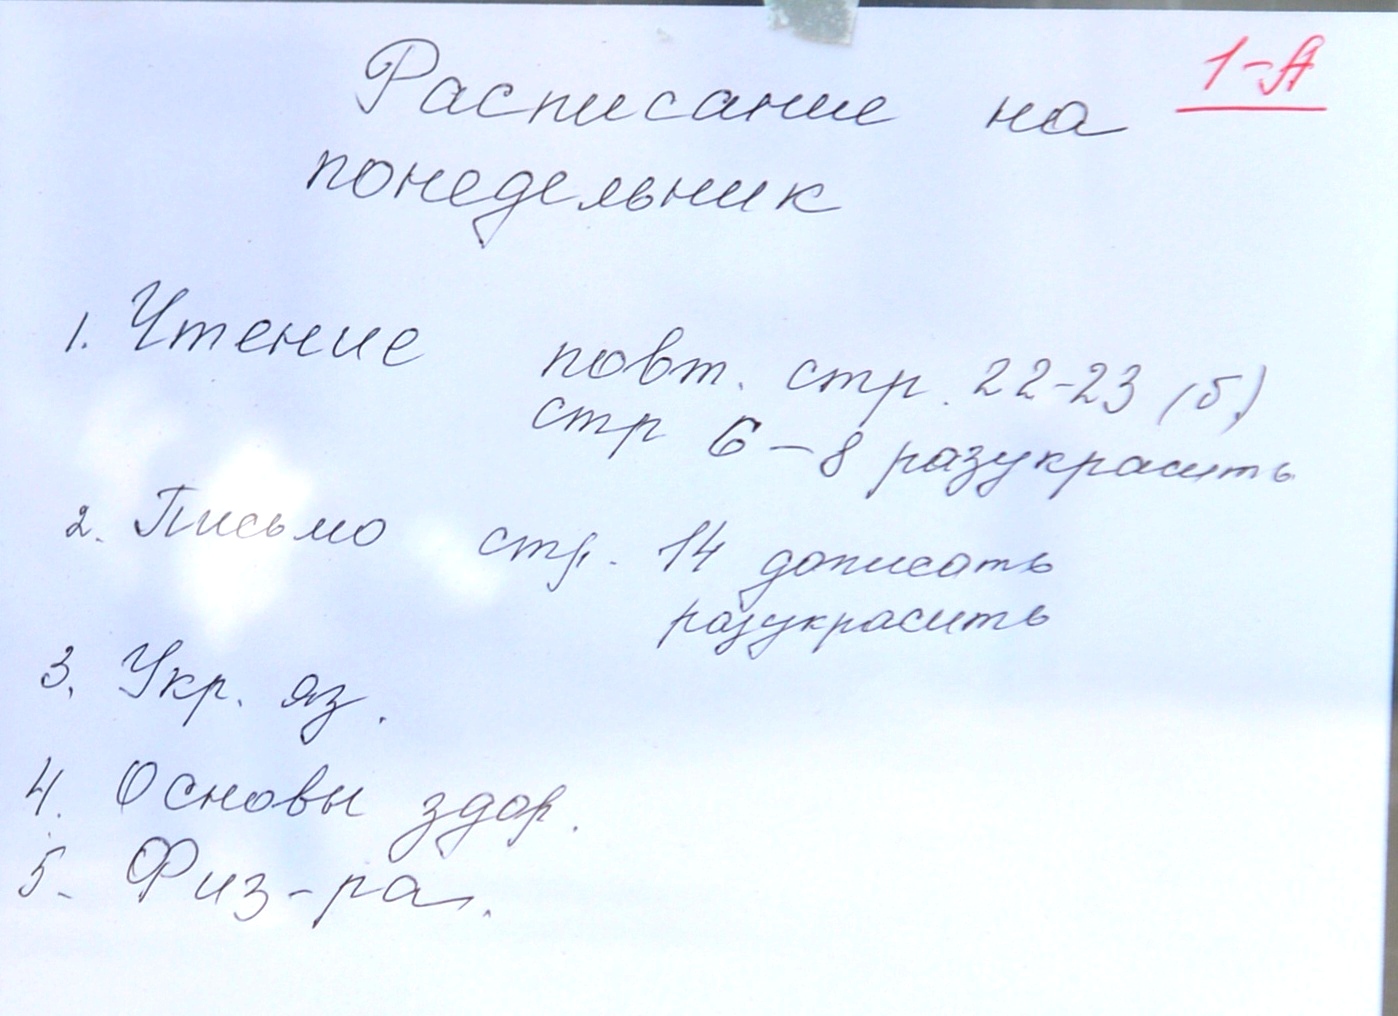 1-А
Расписание на
понедельник
1. Чтение повт. стр. 22-23 (б)
стр 6-8 разукрасить
2. Письмо стр. 14 дописать
разукрасить
3. Укр. яз.
4. Основы здор.
5. Физ-ра.